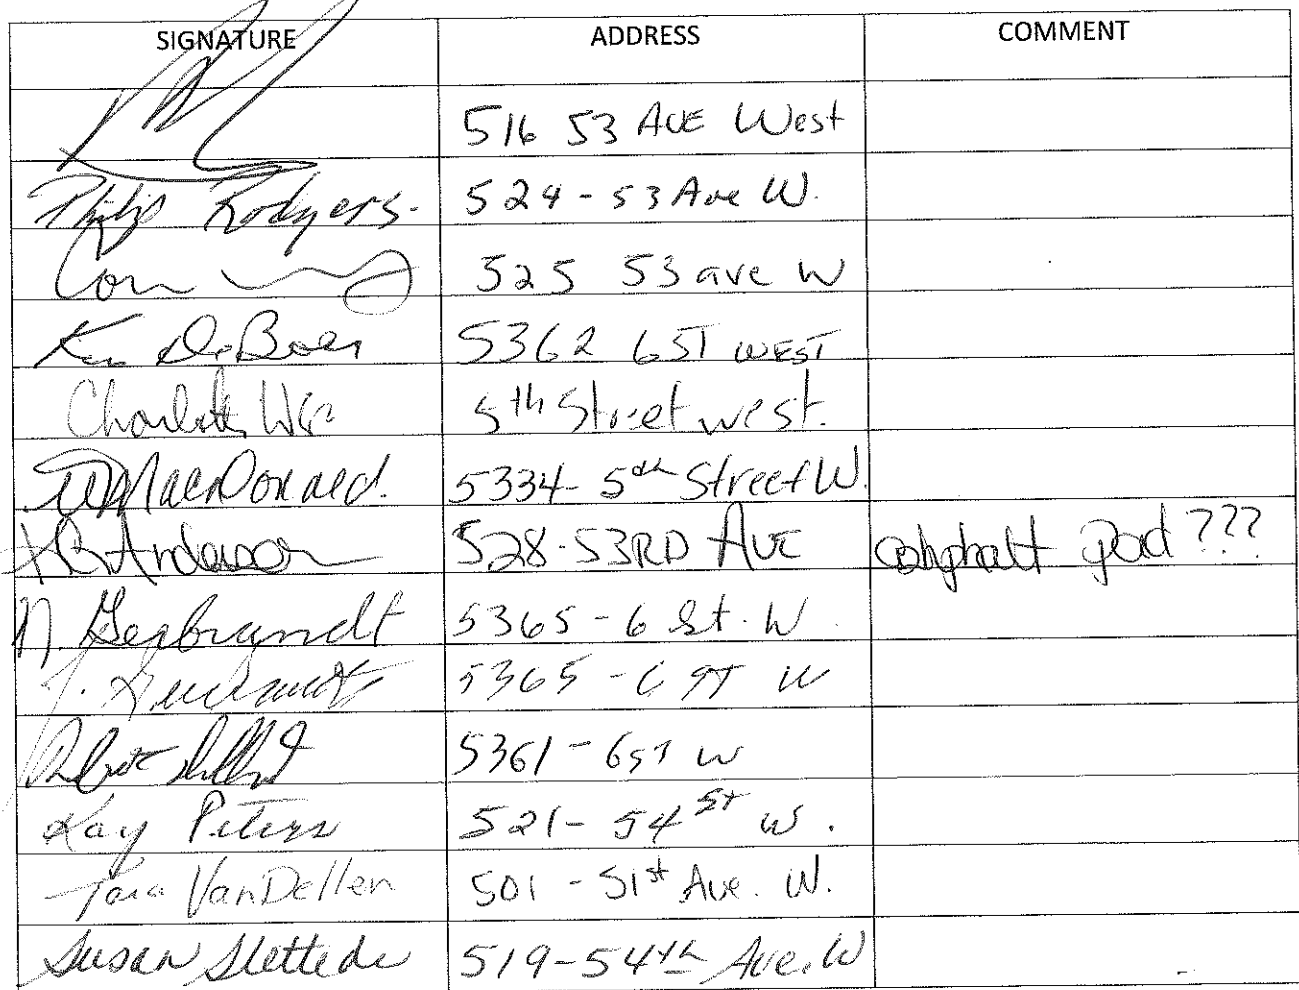 SIGNATURE ADDRESS COMMENT
516 53 AVE West
Philip Rodgers. 524-53 Ave W.
525 53 ave W
Ken DeBoer 5362 6ST WEST
Charlotte 5th Street west.
MacDonald. 5334-5th Street W.
Anderson 528-53RD AVE asphalt pad ???
N. Gerbrandt 5365-6 St. W
J. 5365-6 ST W
5361-6ST W
Kay Peters 521-54 St W.
Tara VanDellen 501-51st Ave. W.
Susan 519-54th Ave. W